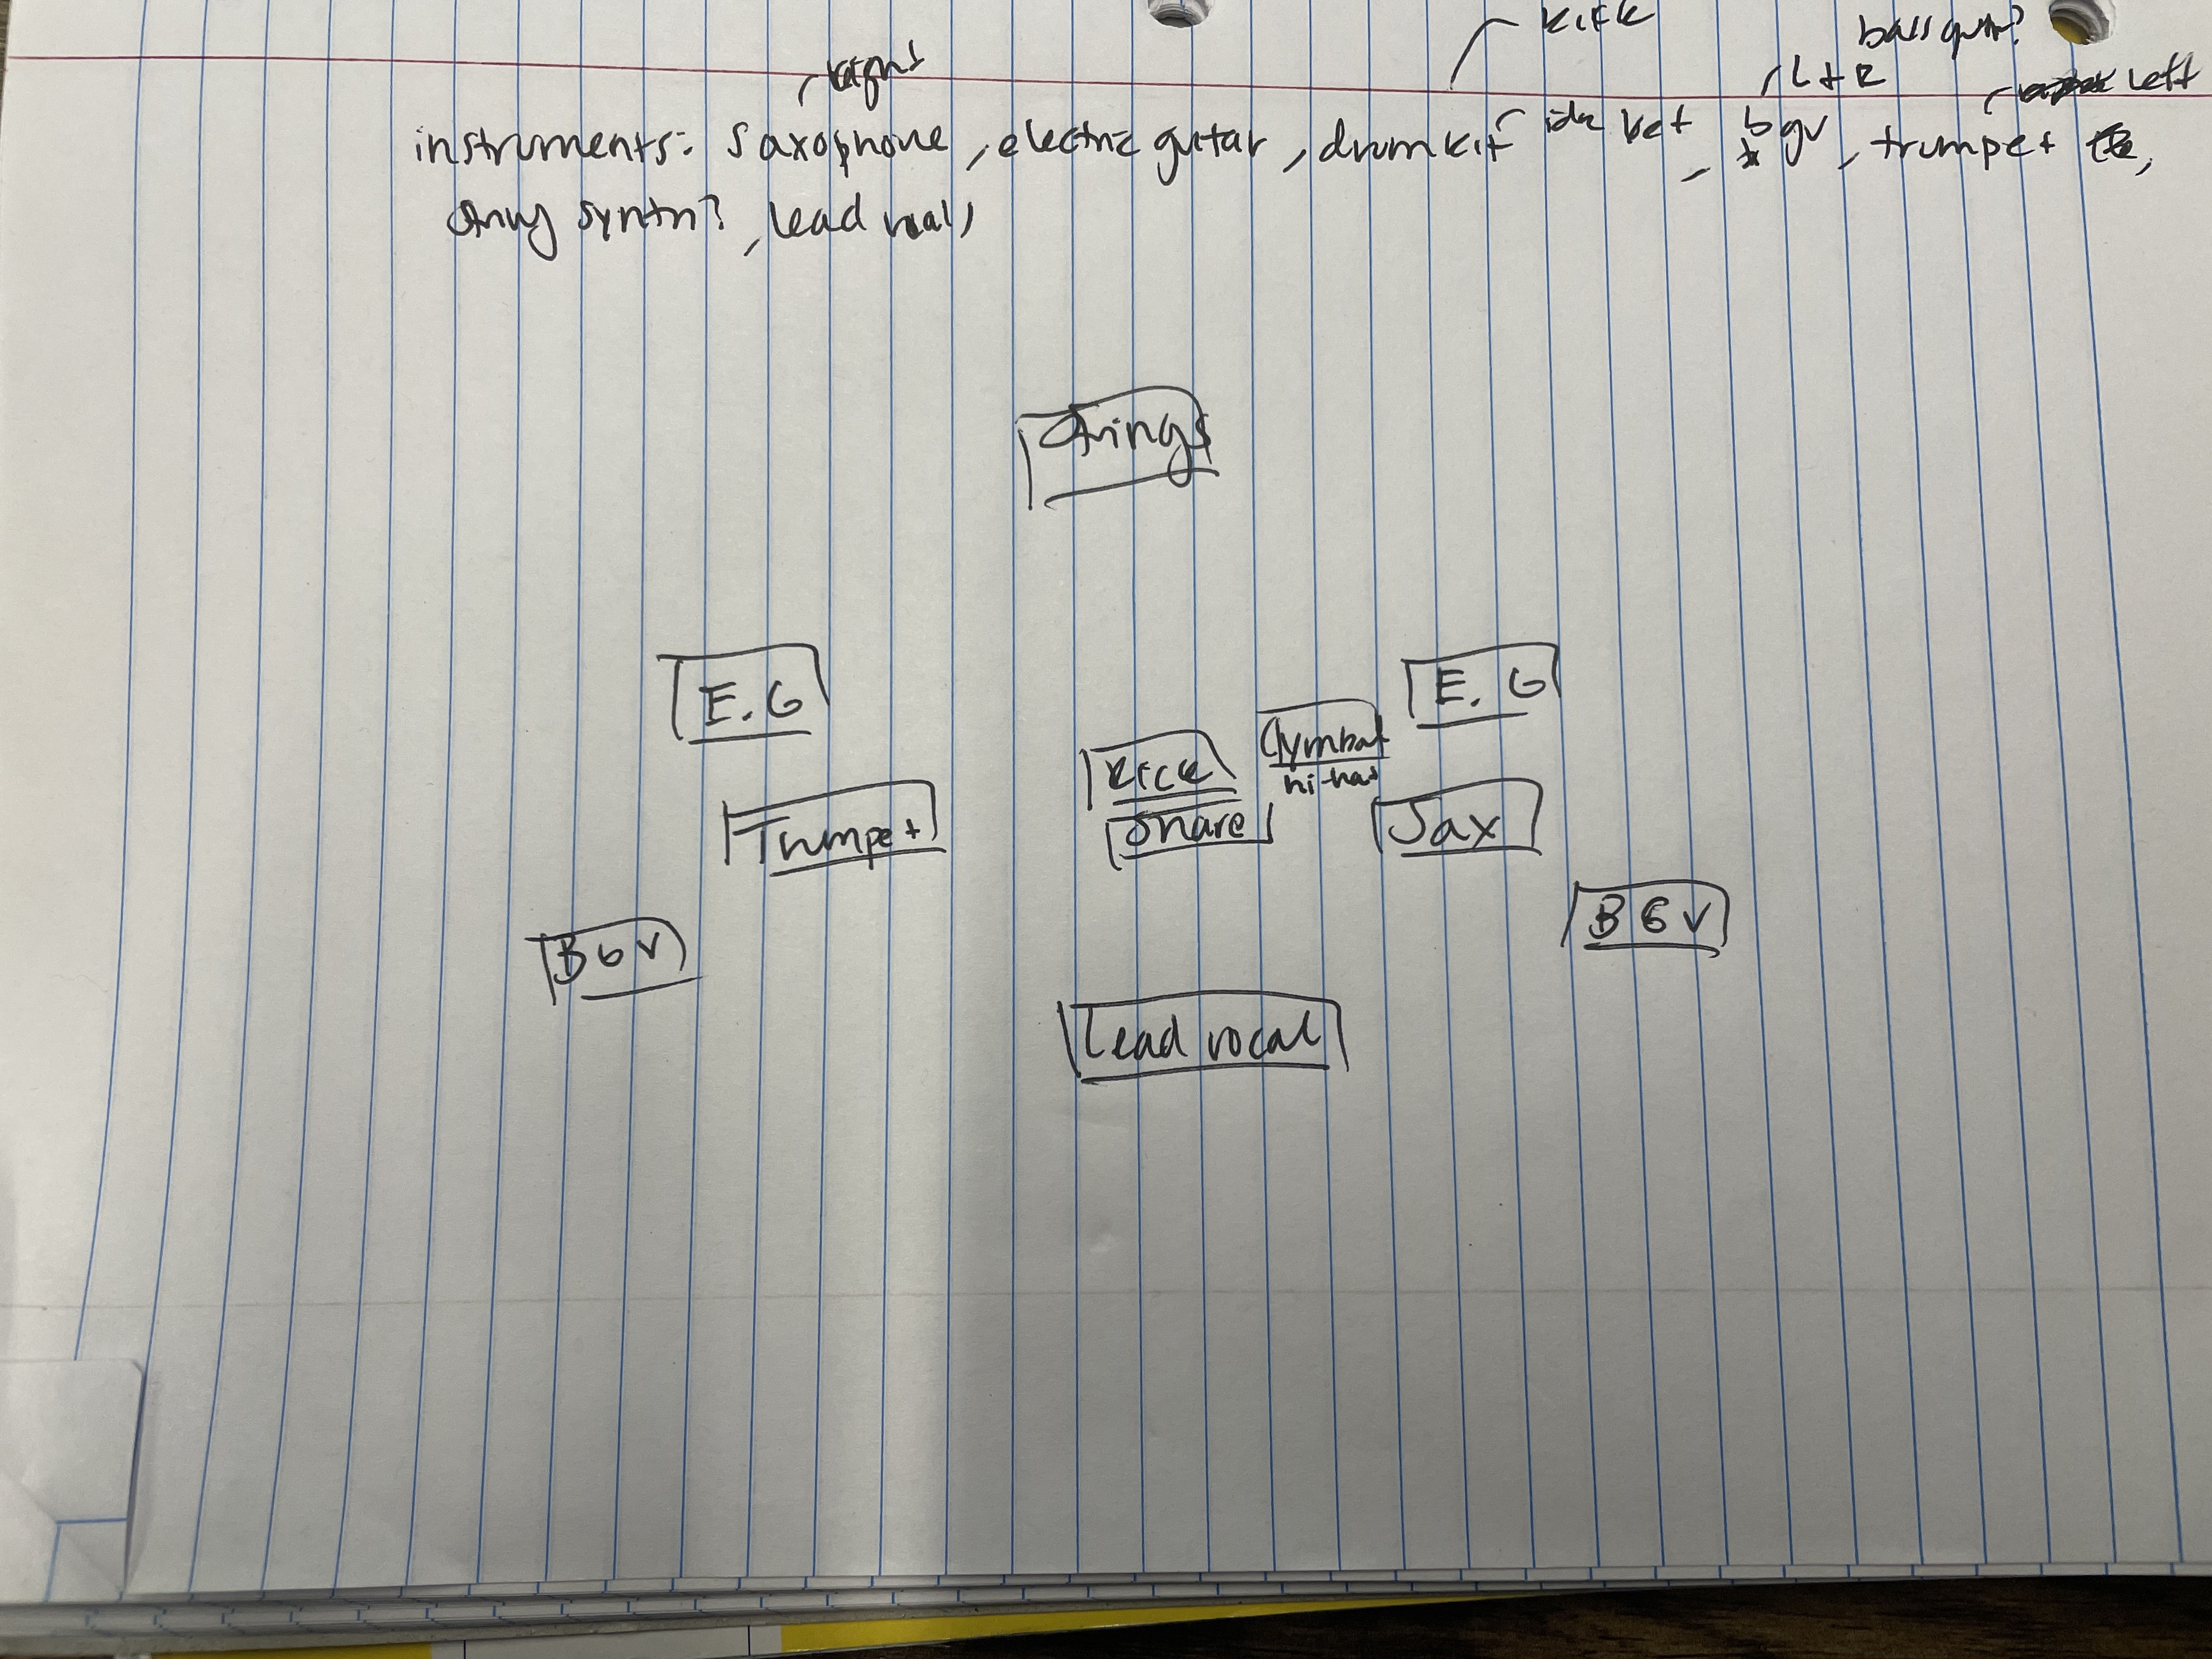 kick
bass guitar?
right
L + R
Left
instruments: saxophone, electric guitar, drum kit idk yet, bgv, trumpet,
string synth?, lead vocals
Strings
E.G
E.G
Cymbal
hi-hat
Kick
Snare
Trumpet
Sax
BGV
BGV
Lead vocal